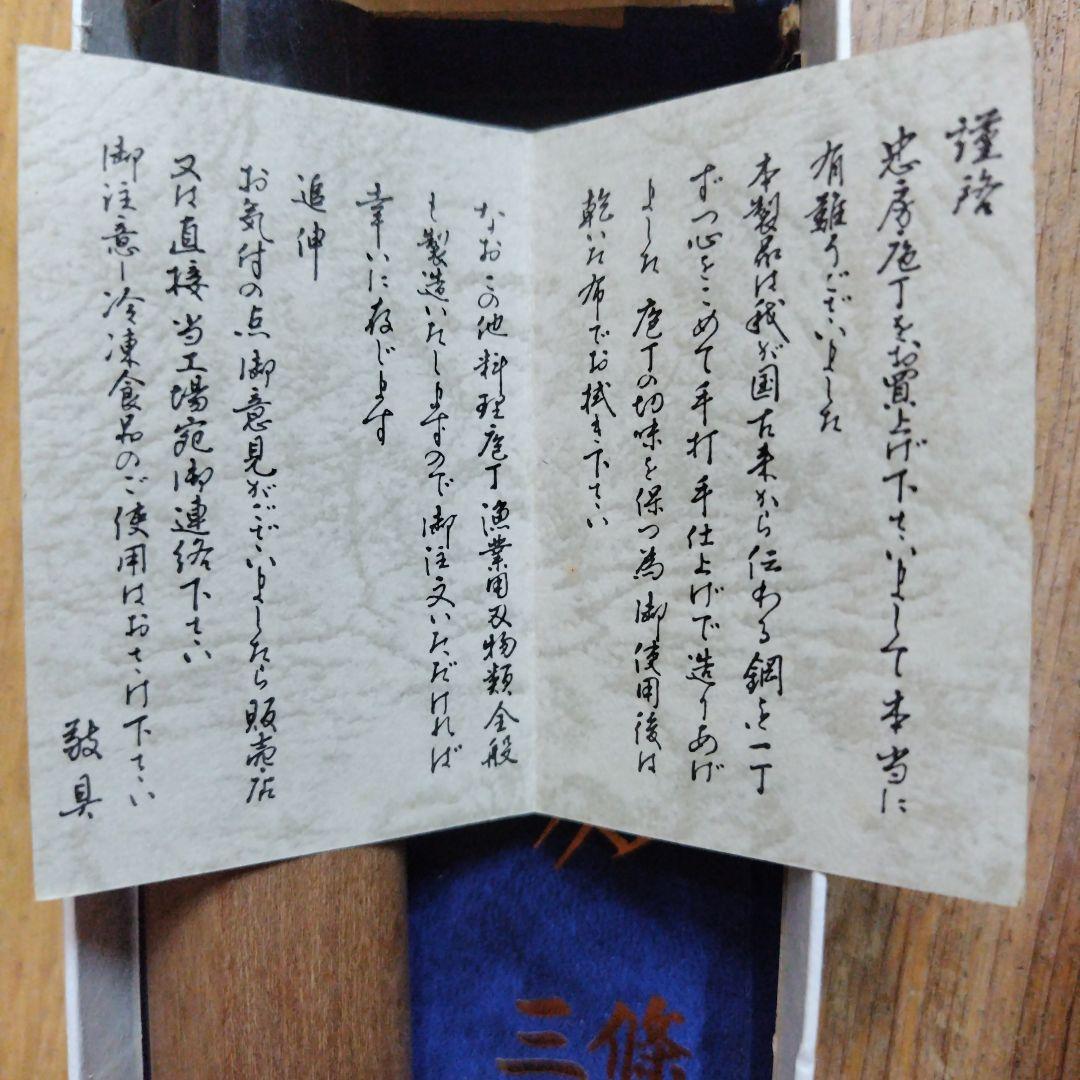 謹啓
忠房庖丁をお買上げ下さいまして本当に
有難うございました
本製品は我が国古来から伝わる鋼を一丁
ずつ心をこめて手打手仕上げで造りあげ
ました 庖丁の切味を保つ為御使用後は
乾いた布でお拭き下さい
なおこの他料理庖丁漁業用刃物類全般
も製造いたしますので御注文いただければ
幸いに存じます
追伸
お気付の点御意見がございましたら販売店
又は直接当工場宛御連絡下さい
御注意ー冷凍食品のご使用はおさけ下さい
敬具
三條